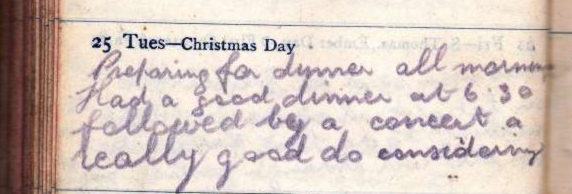 25 Tues—Christmas Day
Preparing for dinner all morning
Had a good dinner at 6.30
followed by a concert a
really good do considering